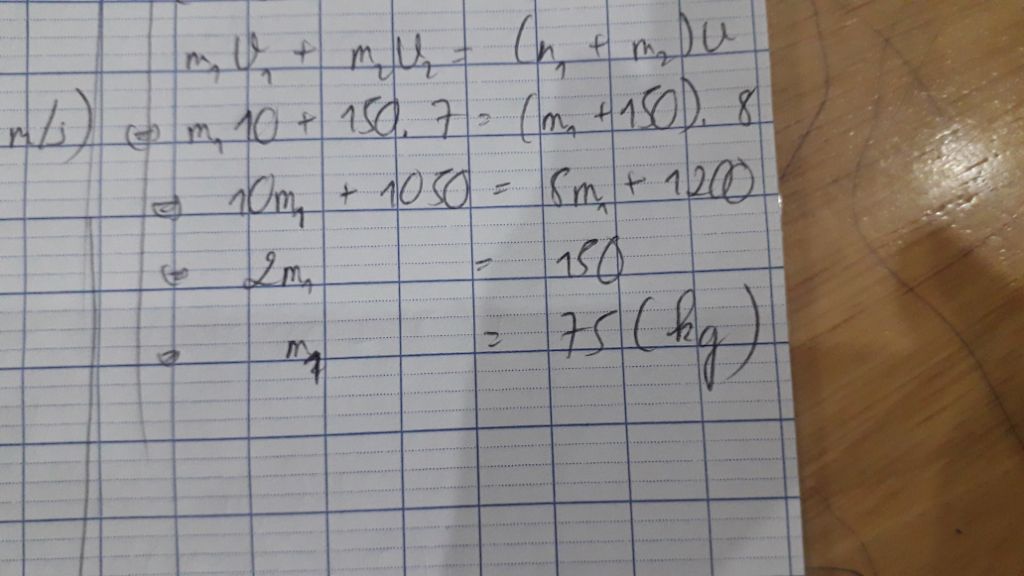 m₁ v₁ + m₂ v₂ = (m₁ + m₂) v
m/s) ⇔ m₁ 10 + 150. 7 = (m₁ + 150). 8
⇔ 10m₁ + 1050 = 8m₁ + 1200
⇔ 2m₁ = 150
⇔ m₁ = 75 (kg)